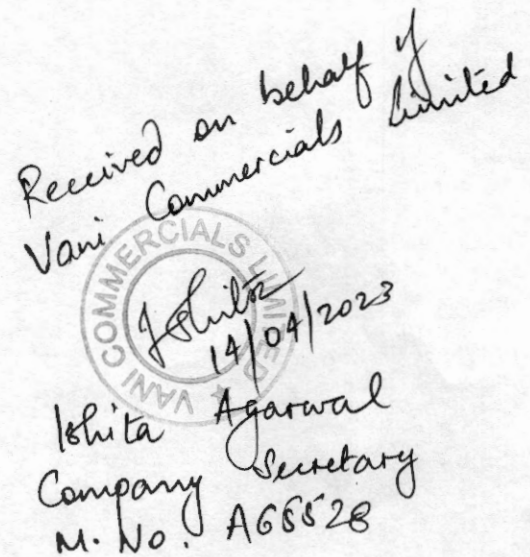 Received on behalf of
Vani Commercials Limited
VANI COMMERCIALS LIMITED ★
Ishita
14/04/2023
Ishita Agarwal
Company Secretary
M. No. A65528